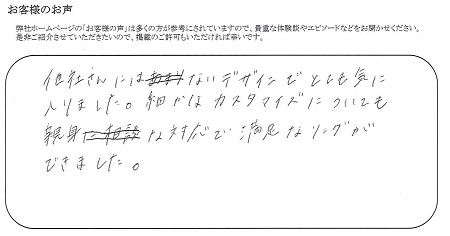 お客様のお声
弊社ホームページの「お客様の声」は多くの方が参考にされていますので、貴重な体験談やエピソードなどをお聞かせください。
是非ご紹介させていただきたいので、掲載のご許可もいただければ幸いです。
他社さんにはないデザインでとても気に
入りました。細かなカスタマイズについても
親身な対応で満足なリングが
できました。